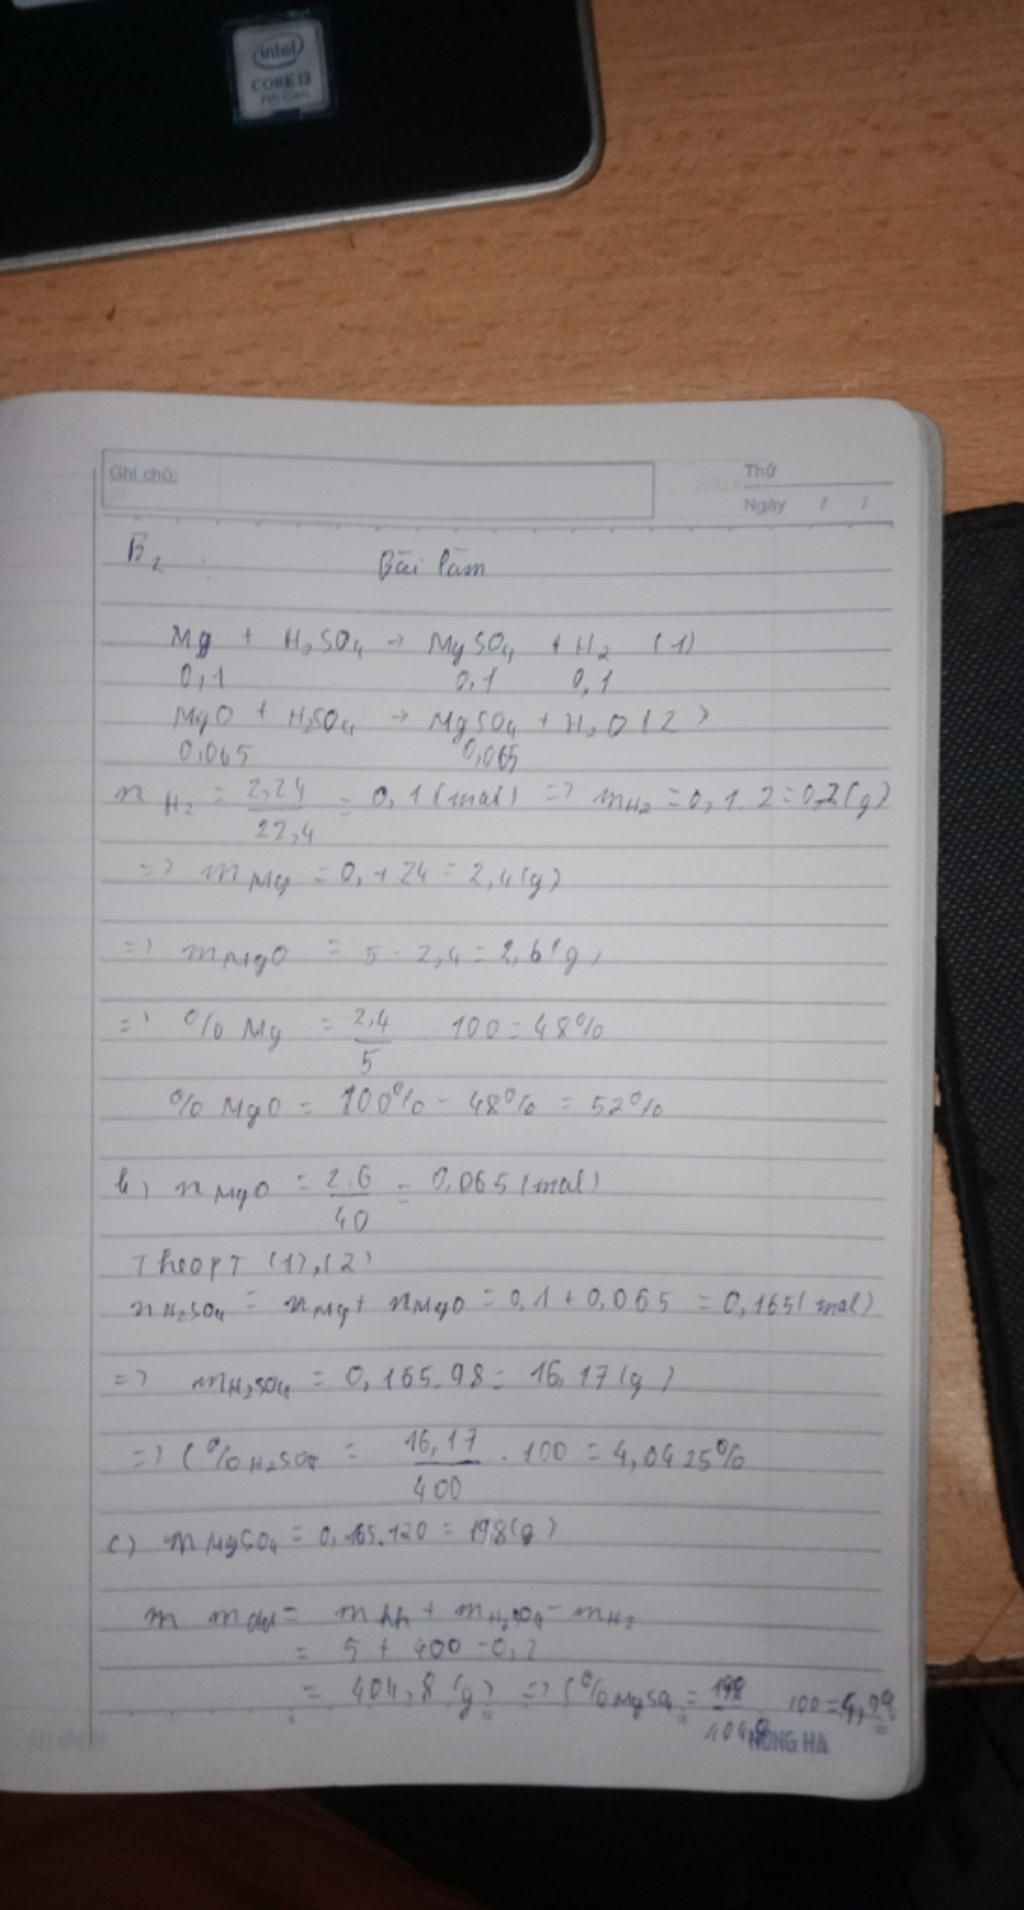 intel
CORE i3
7th Gen
Ghi chú:
Thứ
Ngày / /
B2 Bài làm
Mg + H2SO4 → MgSO4 + H2 (1)
0,1 0,1 0,1
MgO + H2SO4 → MgSO4 + H2O (2)
0,065 0,065
n H2 = 2,24 / 22,4 = 0,1 (mol) => mH2 = 0,1.2 = 0,2(g)
=> m Mg = 0,1 24 = 2,4(g)
=> m MgO = 5 - 2,4 = 2,6(g)
=> % Mg = 2,4 / 5 . 100 = 48%
% MgO = 100% - 48% = 52%
b) n MgO = 2.6 / 40 = 0,065 (mol)
Theo PT (1),(2)
n H2SO4 = n Mg + n MgO = 0,1 + 0,065 = 0,165 (mol)
=> m H2SO4 = 0,165.98 = 16,17(g)
=> C% H2SO4 = 16,17 / 400 . 100 = 4,0425%
c) m MgSO4 = 0,165.120 = 198(g)
m mdd = m hh + m H2SO4 - m H2
= 5 + 400 - 0,2
= 404,8 (g) => C% MgSO4 = 198 / 404,8 100 = 4,
HONG HA